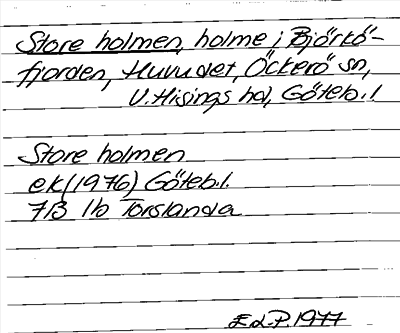 Store holmen, holme i Björkö-
fjorden, Huvudet, Öckerö sn,
V. Hisings hd, Göteb.l.
Store holmen
ek (1976) Göteb.l.
7B 1b Torslanda
E d. P. 1977